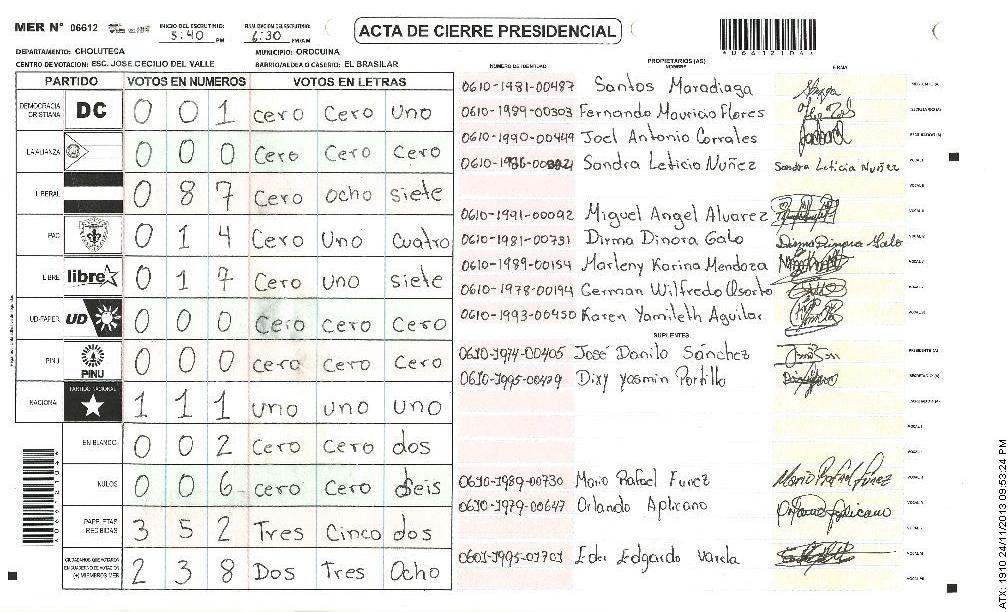 MER Nº 06612
INICIO DEL ESCRUTINIO: 5:40 PM
FINALIZACION DEL ESCRUTINIO: 6:30 PM/AM
ACTA DE CIERRE PRESIDENCIAL
* 0 6 6 1 2 1 0 4 *
DEPARTAMENTO: CHOLUTECA
MUNICIPIO: OROCUINA
CENTRO DE VOTACION: ESC. JOSE CECILIO DEL VALLE
BARRIO/ALDEA O CASERIO: EL BRASILAR
PARTIDO VOTOS EN NUMEROS VOTOS EN LETRAS
DEMOCRACIA CRISTIANA DC 0 0 1 cero Cero Uno
LA ALIANZA 0 0 0 Cero Cero Cero
LIBERAL 0 8 7 Cero ocho siete
PAC 0 1 4 Cero Uno cuatro
LIBRE libre 0 1 7 Cero uno siete
UD-FAPER UD 0 0 0 Cero cero Cero
PINU PINU 0 0 0 Cero cero Cero
NACIONAL PARTIDO NACIONAL 1 1 1 uno uno uno
EN BLANCO 0 0 2 Cero Cero dos
NULOS 0 0 6 cero Cero Seis
PAPELETAS RECIBIDAS 3 5 2 Tres Cinco dos
CIUDADANOS QUE VOTARON EN CUADERNO DE VOTACION (+) MIEMBROS MER 2 3 8 Dos Tres Ocho
NUMERO DE IDENTIDAD
PROPIETARIOS (AS)
NOMBRE
FIRMA
0610-1981-00487 Santos Maradiaga PRESIDENTE (A)
0610-1989-00303 Fernando Mauricio Flores SECRETARIO (A)
0610-1990-00449 Joel Antonio Corrales ESCRUTADOR (A)
Sandra Leticia Nuñez Sandra Leticia Nuñez VOCAL I
0610-1991-00092 Miguel Angel Alvarez
0610-1981-00731 Dirma Dinora Galo Dirma Dinora Galo
0610-1989-00154 Marleny Karina Mendoza
0610-1978-00194 German Wilfredo Osorto
0610-1993-00450 Karen Yamileth Aguilar
SUPLENTES
0610-1974-00405 José Danilo Sánchez PRESIDENTE (A)
0610-1995-00479 Dixy Yasmin Portillo SECRETARIO (A)
ESCRUTADOR (A)
VOCAL I
0610-1989-00730 Mario Rafael Funez Mario Rafael Funez
0610-1979-00647 Orlando Aplicano
Eder Edgardo Varela
ATX: 1910 24/11/2013 09:53:24 PM